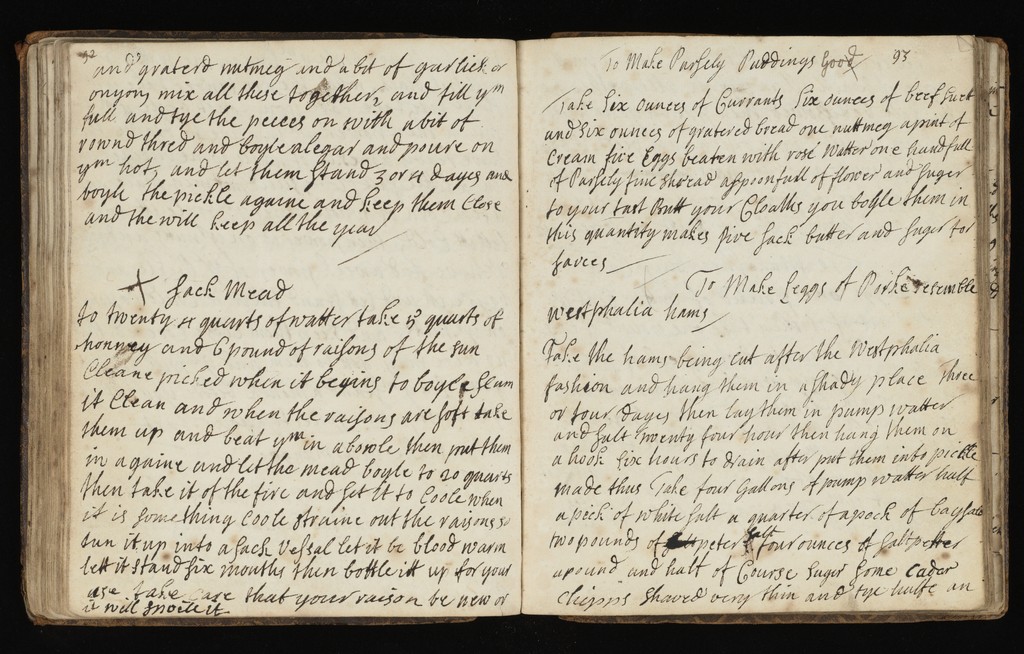 92
and graterd nutmeg and a bit of garlick or
onyon, mix all these together, and fill ym
full and tye the peeces on with a bit of
rownd thred and boyle alegar and poure on
ym hot, and let them stand 3 or 4 dayes and
boyle the pickle againe and keep them Close
and the will keep all the year
Sack Mead
to twenty 4 quarts of watter take 5 quarts of
honney and 6 pound of raisons of the sun
Cleane picked when it begins to boyle scum
it Clean and when the raisons are soft take
them up and beat ym in a bowle then put them
in againe and let the mead boyle to 20 quarts
then take it of the fire and set it to Coole when
it is something Coole straine out the raisons so
tun it up into a sack Vessal let it be blood warm
lett it stand six mouths then bottle itt up for your
use take care that your raison be new or
it will spoile it
To Make Parsely Puddings Good 93
Take Six ounces of Currants Six ounces of beef suet
and six ounces of gratered bread one nuttmeg a print of
Cream five Eggs beaten with rose watter one handfull
of Parsely fine shread a spoonfull of flower and suger
to your tast Butt your Cloaths you boyle them in
this quantity makes five sack butter and suger for
sawces
To Make Leggs of Porke resemble
westphalia hams
Take the hams being cut after the Westphalia
fashion and hang them in a shady place three
or four dayes then lay them in pump watter
and salt twenty four hour then hang them on
a hook six hours to drain after put them into pickle
made thus Take four Gallons of pump watter half
a peck of white salt a quarter of a pock of bay salt
two pounds of peter salt four ounces of saltpetter
a pound and half of Course suger some Cader
Chipps shaved very thin and tye halfe an